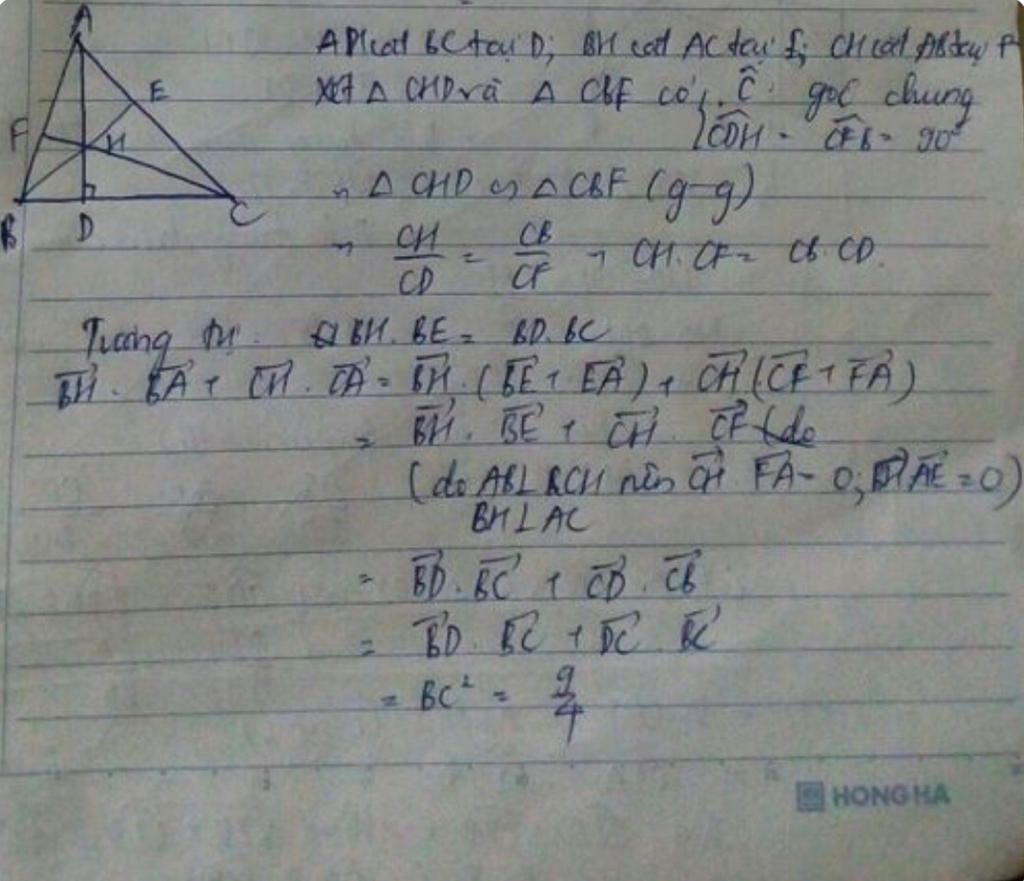 A
E
F
H
B
D
C
AH cắt BC tại D; BH cắt AC tại E; CH cắt AB tại F
Xét △ CHD và △ CBF có { Ĉ: góc chung
\widehat{CDH} = \widehat{CFB} = 90°
⇒ △ CHD ∽ △ CBF (g-g)
⇒ \frac{CH}{CD} = \frac{CB}{CF} ⇒ CH. CF = CB. CD.
Tương tự: BH. BE = BD. BC
\vec{BH} . \vec{BA} + \vec{CH} . \vec{CA} = \vec{BH} . (\vec{BE} + \vec{EA}) + \vec{CH} (\vec{CF} + \vec{FA})
= \vec{BH} . \vec{BE} + \vec{CH} . \vec{CF}
(do AB⊥CH nên \vec{CH} \vec{FA} = 0; \vec{BH} \vec{AE} = 0)
BH⊥AC
= \vec{BD} . \vec{BC} + \vec{CD} . \vec{CB}
= \vec{BD} . \vec{BC} + \vec{DC} . \vec{BC}
= BC² = \frac{9}{4}
HONG HA